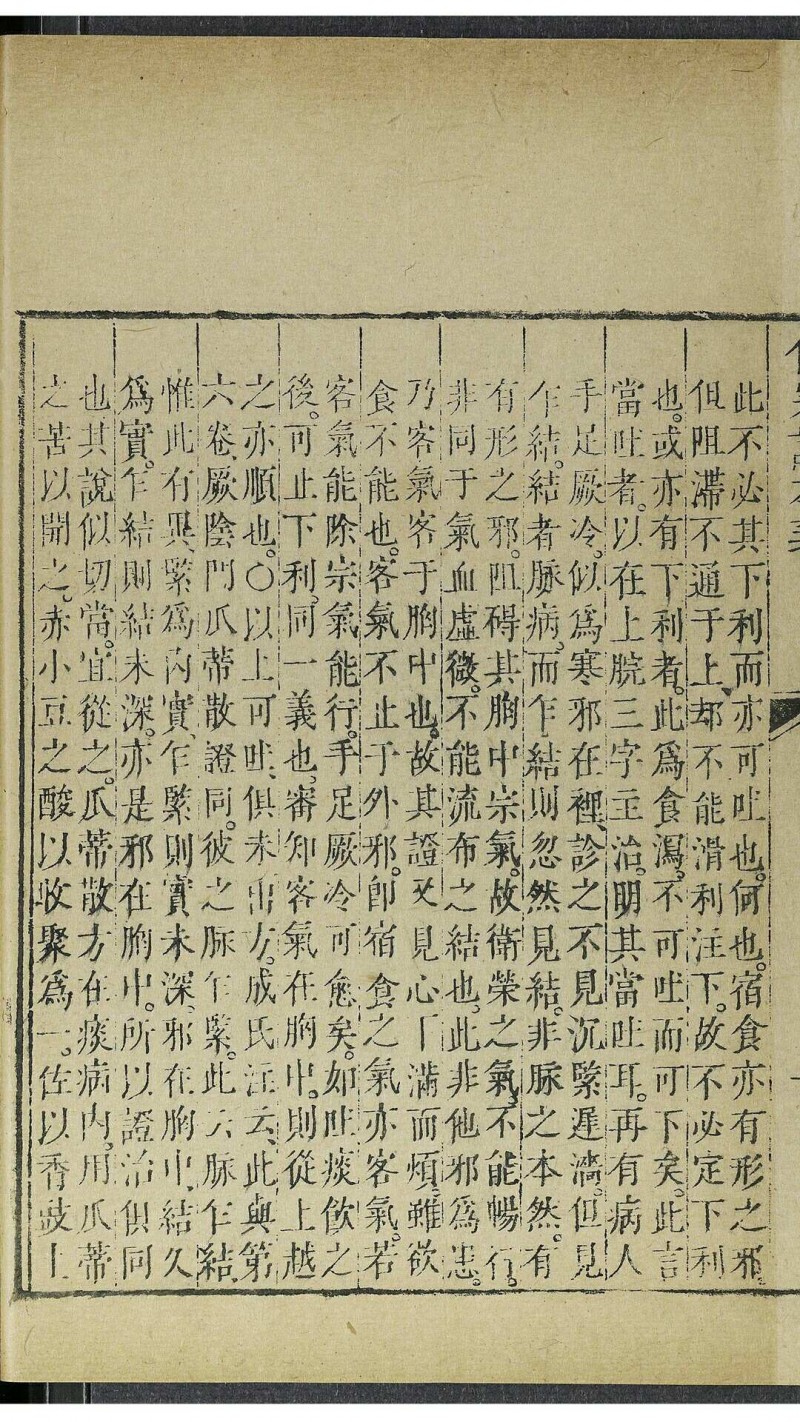 此不必其下利而亦可吐也。何也。宿食亦有形之邪
但阻滯不通于上、却不能滑利注下。故不必定下利
也。或亦有下利者。此爲食瀉。不可吐而可下矣。此言
當吐者。以在上脘三字主治。明其當吐耳。再有病人
手足厥冷。似爲寒邪在裡、診之不見沉緊遲濇。但見
乍結。結者脉病。而乍結則忽然見結。非脉之本然。有
有形之邪。阻碍其胸中宗氣。故衛榮之氣不能暢行。
非同于氣血虛微。不能流布之結也。此非他邪爲患。
乃客氣客于胸中也。故其證又見心下滿而煩。雖欲
食不能也。客氣不止于外邪。卽宿食之氣亦客氣。若
客氣能除宗氣能行。手足厥冷可愈矣。如吐痰飲之
後。可止下利。同一義也、審知客氣在胸中。則從上越
之亦順也。○以上可吐、俱未出方。成氏注云、此與第
六卷、厥陰門瓜蒂散證同。彼之脉乍緊。此云脉乍結、
惟此有異、緊爲內實、乍緊則實未深、邪在胸中、結久
爲實。乍結則結未深。亦是邪在胸中。所以證治俱同
也其說似切當。宜從之。瓜蒂散方在痰病內。用瓜蒂
之苦以開之。赤小豆之酸以收聚爲一。佐以香豉上